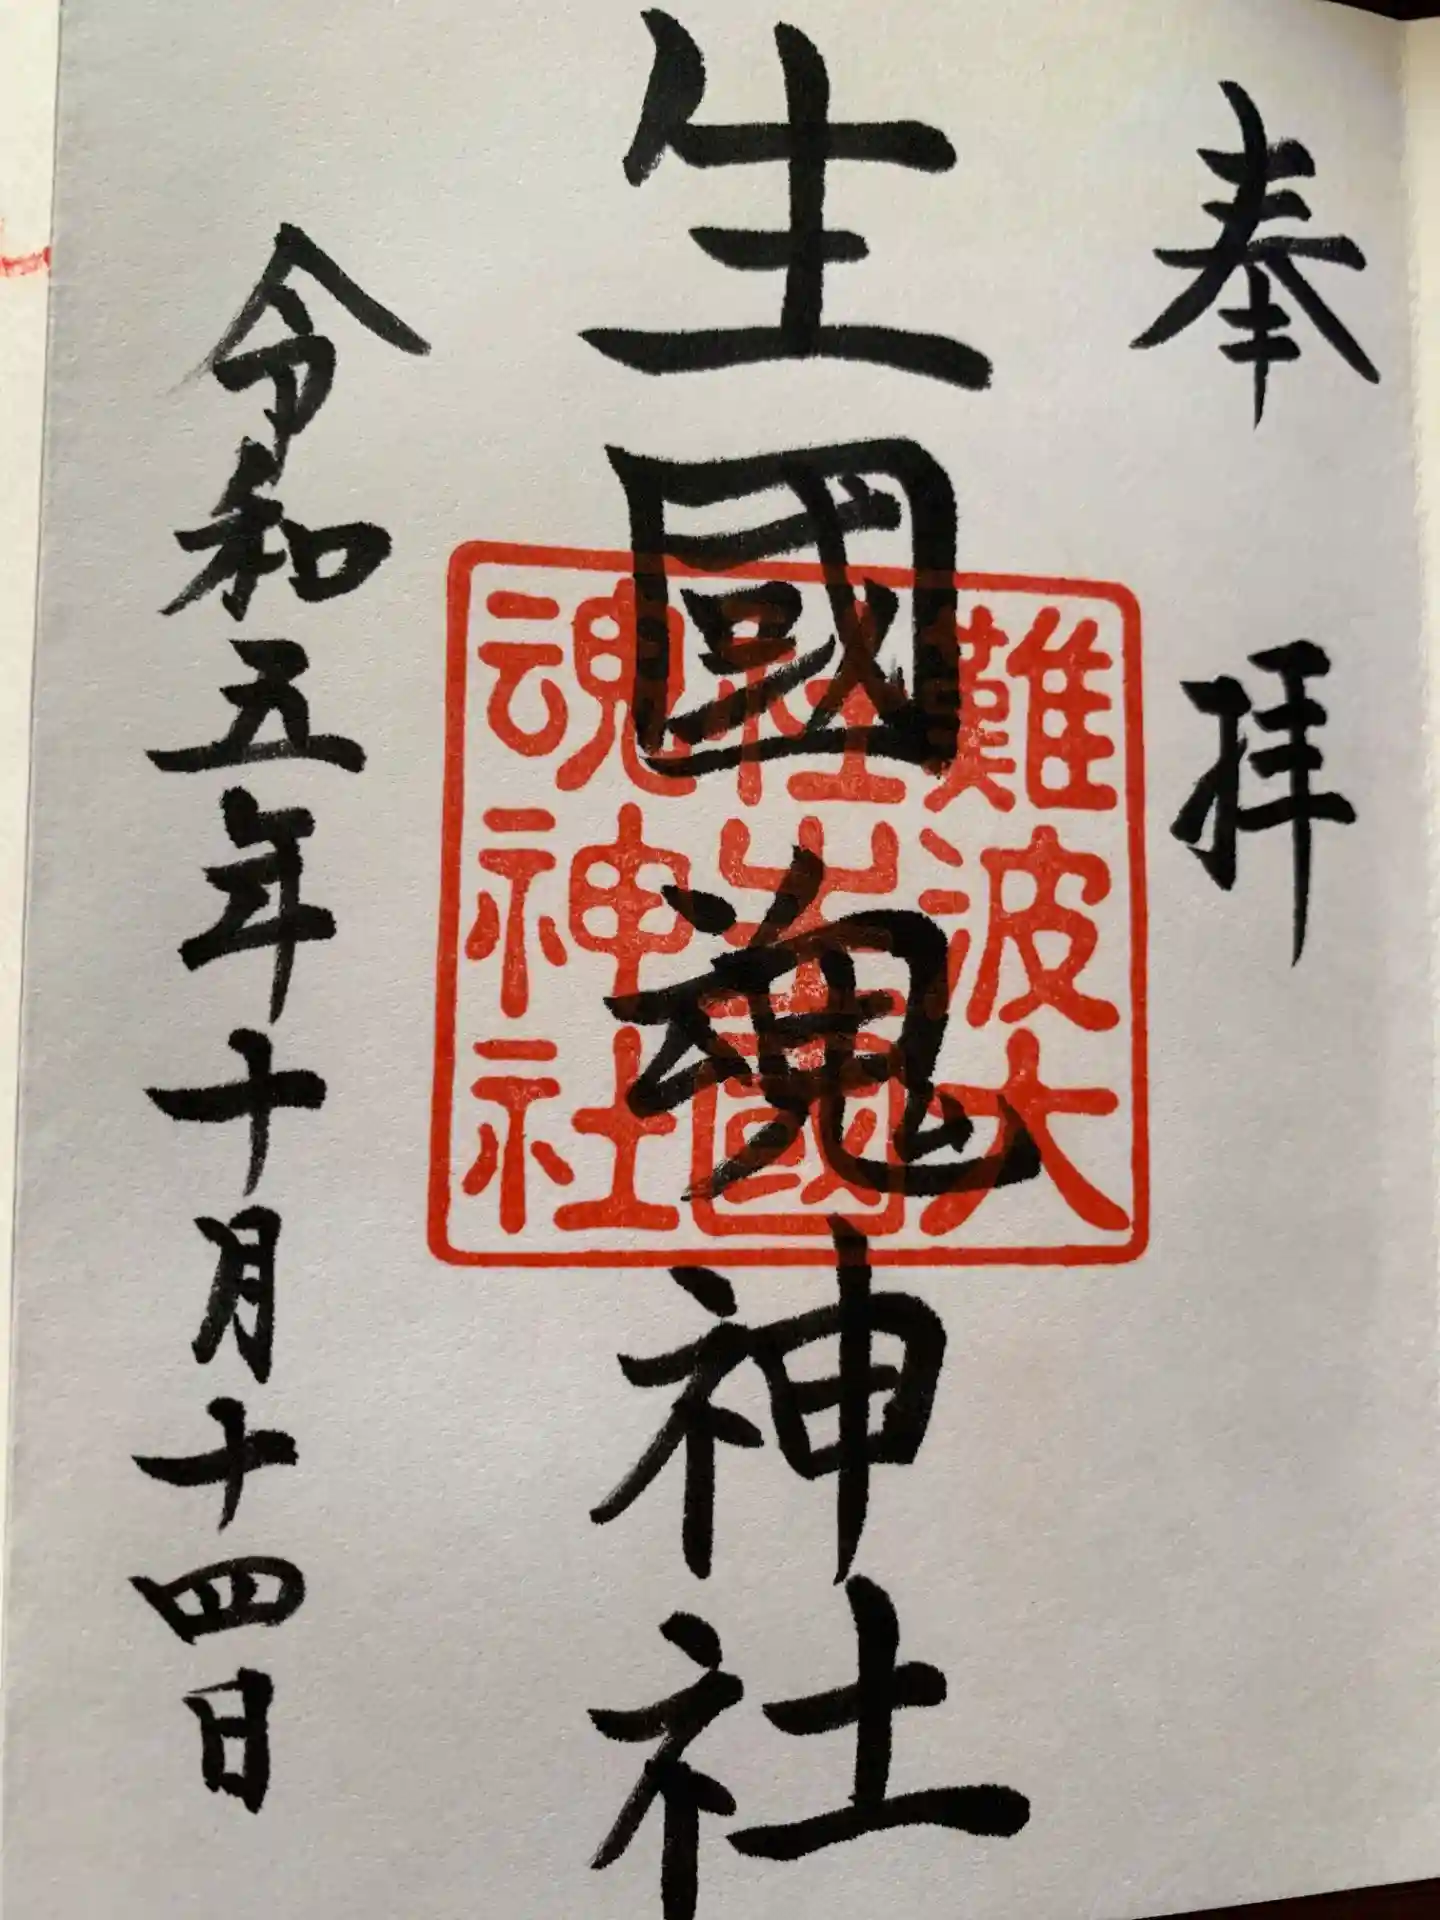 奉拝
生國魂神社
難波大
社生國
魂神社
令和五年十月十四日